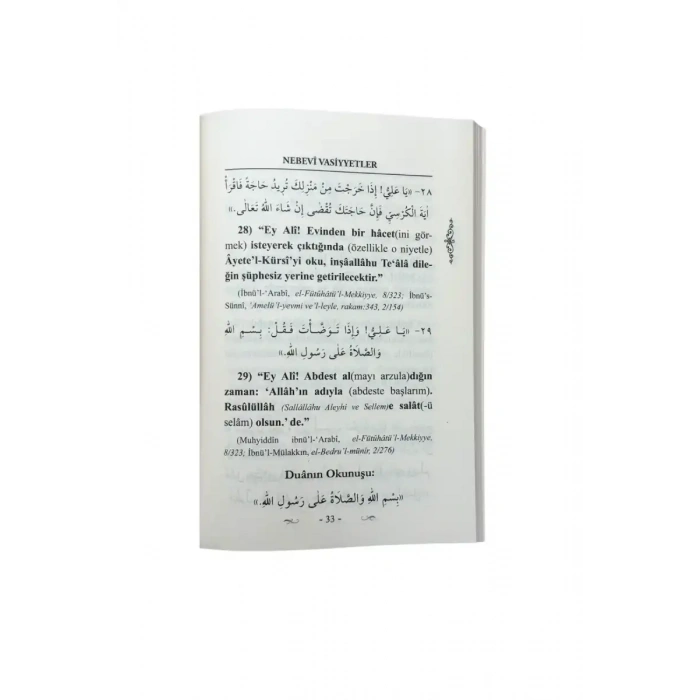 NEBEVÎ VASİYYETLER
٢٨- «يَا عَلِيُّ! إِذَا خَرَجْتَ مِنْ مَنْزِلِكَ تُرِيدُ حَاجَةً فَاقْرَأْ
اٰيَةَ الْكُرْسِيِّ فَإِنَّ حَاجَتَكَ تُقْضٰى إِنْ شَاءَ اللهُ تَعَالٰى.»
28) “Ey Alî! Evinden bir hâcet(ini gör-
mek) isteyerek çıktığında (özellikle o niyetle)
Âyete’l-Kürsî’yi oku, inşâallâhu Te‘âlâ dile-
ğin şüphesiz yerine getirilecektir.”
(İbnü’l-‘Arabî, el-Fütûhâtü’l-Mekkiyye, 8/323; İbnü’s-
Sünnî, ‘Amelü’l-yevmi ve’l-leyle, rakam:343, 2/154)
٢٩- «يَا عَلِيُّ! وَإِذَا تَوَضَّأْتَ فَقُلْ: بِسْمِ اللهِ
وَالصَّلَاةُ عَلٰى رَسُولِ اللهِ.»
29) “Ey Alî! Abdest al(mayı arzula)dığın
zaman: ‘Allâh’ın adıyla (abdeste başlarım).
Rasûlüllâh (Sallâllâhu Aleyhi ve Sellem)e salât(-ü
selâm) olsun.’ de.”
(Muhyiddîn ibnü’l-‘Arabî, el-Fütûhâtü’l-Mekkiyye,
8/323; İbnü’l-Mülakkın, el-Bedru’l-münîr, 2/276)
Duânın Okunuşu:
«بِسْمِ اللهِ وَالصَّلَاةُ عَلٰى رَسُولِ اللهِ.»
- 33 -